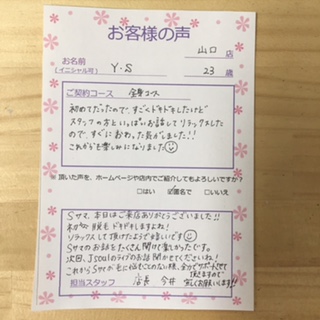 お客様の声
山口 店
お名前
[イニシャル可] Y・S 23 歳
ご契約コース 全身コース
初めてだったので、すごくドキドキしましたけど
スタッフの方といっぱいお話してリラックスした
ので、すぐにおわった気がしました!!
これからも楽しみになりました
頂いた声を、ホームページや店内でご紹介してもよろしいですか?
□はい ☑匿名で □いいえ
Sサマ、本日はご来店ありがとうございました!!
初めての脱毛 ドキドキしますよね!
リラックスして頂けたようで嬉しいです
Sサマのお話をたくさん聞けて楽しかったです。
次回、J soulのライブのお話 聞かせてくださいね!
これからSサマが毛に悩むことのない様、全力でサポートさせて
頂きますので
担当スタッフ 店長 今井 宜しくお願いします!!